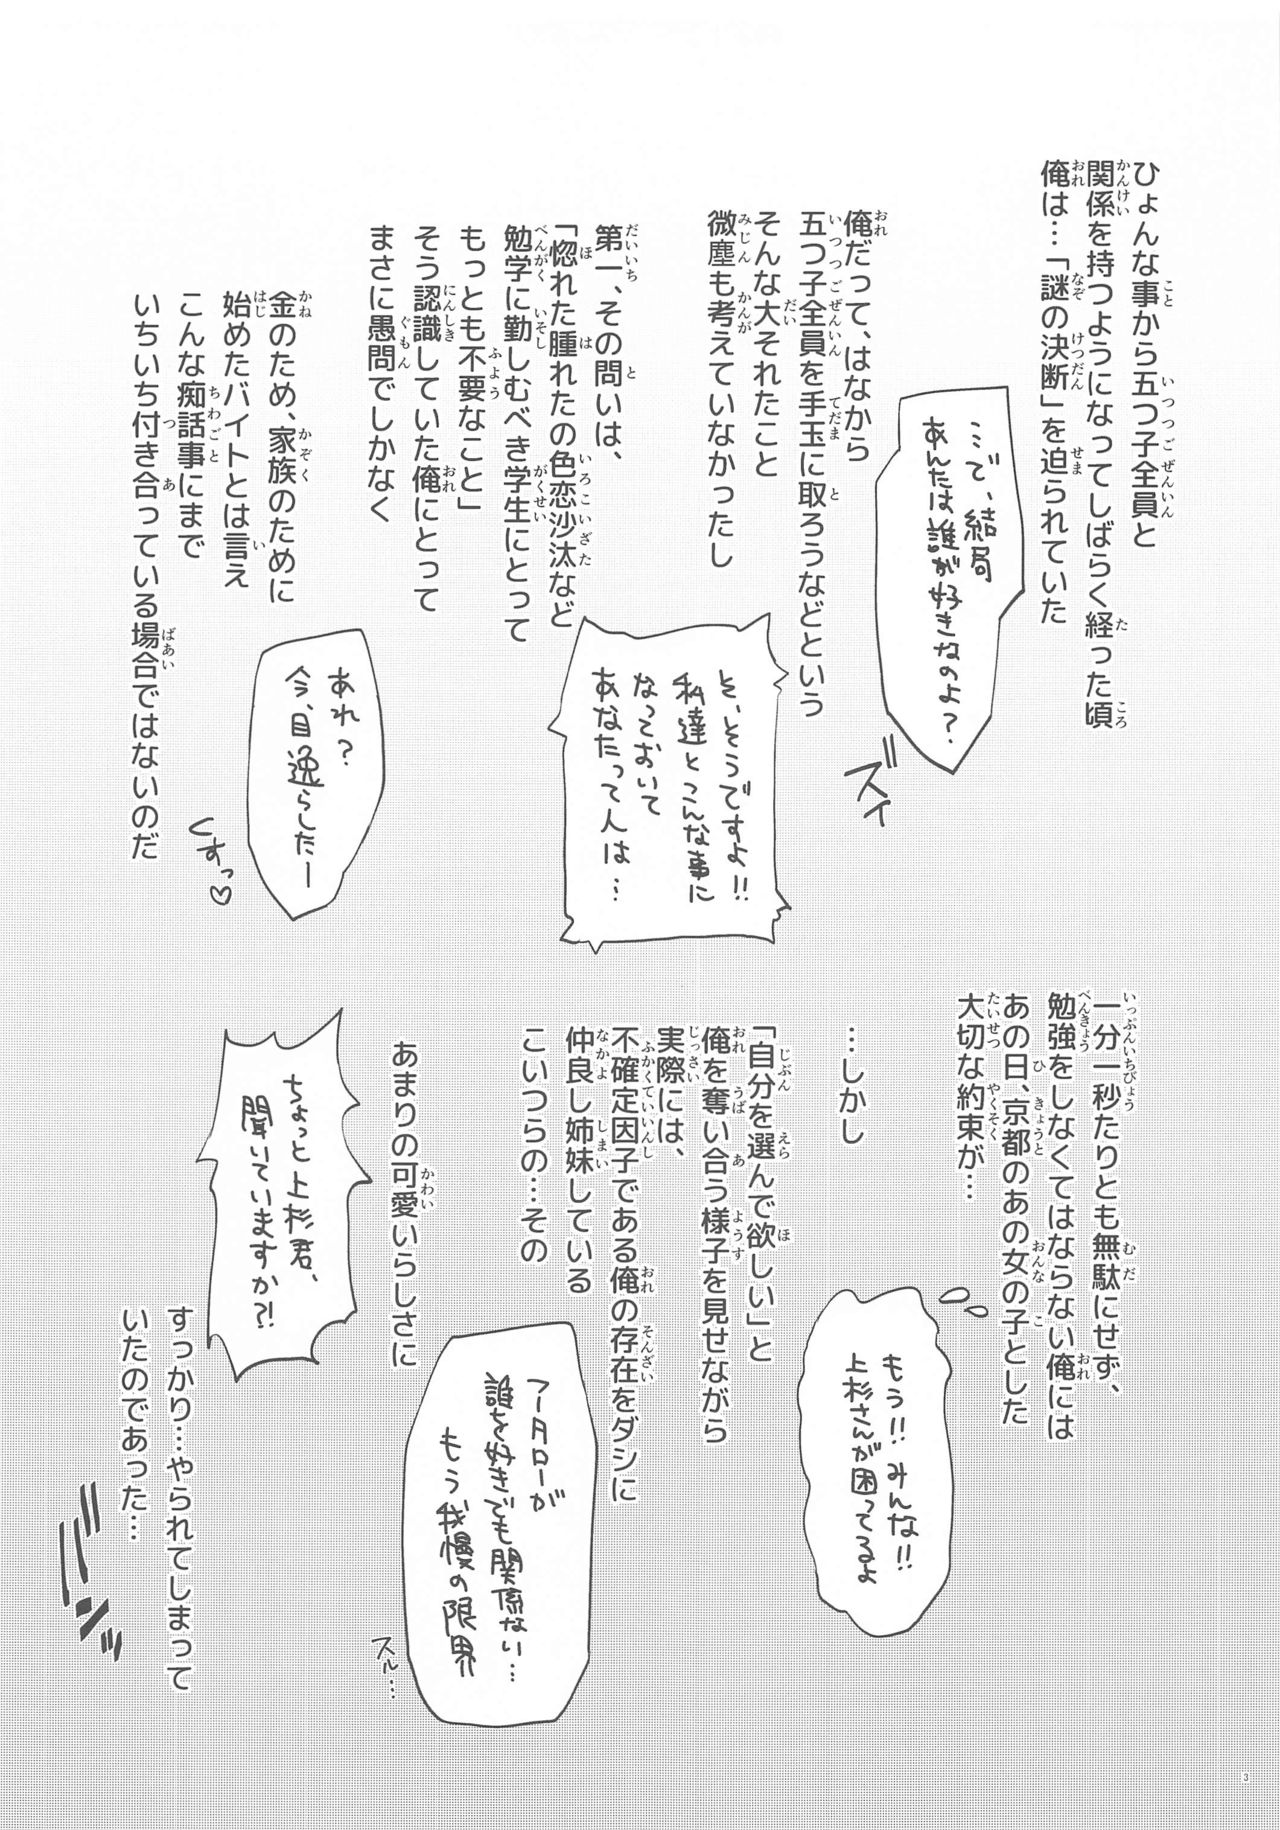 ひょんな事から五つ子全員と
関係を持つようになってしばらく経った頃
俺は…「謎の決断」を迫られていた
…で、結局
あんたは誰が好きなのよ?
ズイ
俺だって、はなから
五つ子全員を手玉に取ろうなどという
そんな大それたこと
微塵も考えていなかったし
そ、そうですよ!!
私達とこんな事に
なっておいて
あなたって人は…
第一、その問いは、
「惚れた腫れたの色恋沙汰など
勉学に勤しむべき学生にとって
もっとも不要なこと」
そう認識していた俺にとって
まさに愚問でしかなく
あれ?
今、目逸らしたー
くすっ♡
金のため、家族のために
始めたバイトとは言え
こんな痴話事にまで
いちいち付き合っている場合ではないのだ
一分一秒たりとも無駄にせず、
勉強をしなくてはならない俺には
あの日、京都のあの女の子とした
大切な約束が…
もう!!みんな!!
上杉さんが困ってるよ
…しかし
「自分を選んで欲しい」と
俺を奪い合う様子を見せながら
実際には、
不確定因子である俺の存在をダシに
仲良し姉妹している
こいつらの…その
フータローが
誰を好きでも関係ない…
もう我慢の限界
スル…
あまりの可愛いらしさに
ちょっと上杉君、
聞いていますか?!
すっかり…やられてしまって
いたのであった…
3